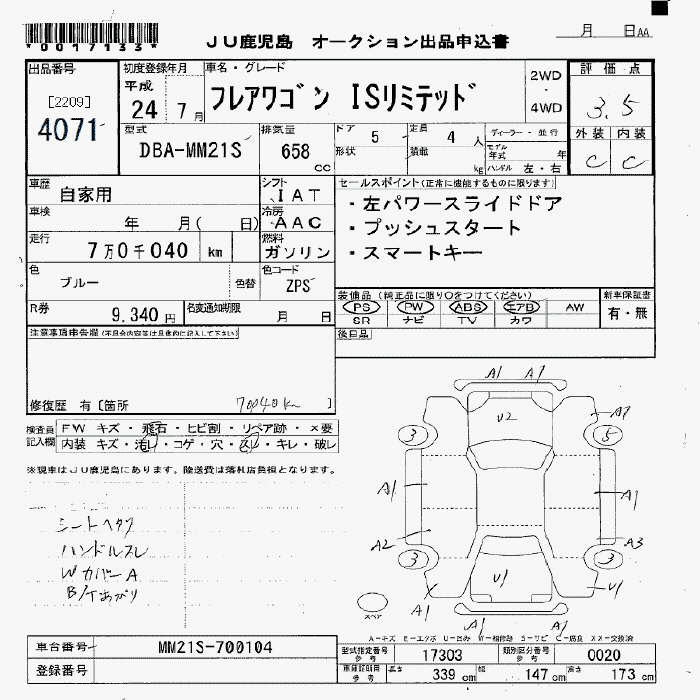 *0017133*
JU鹿児島 オークション出品申込書
月 日 AA
出品番号
[2209]
4071
初度登録年月
平成
24 7 月
車名・グレード
フレアワゴン ISリミテッド
2WD
・
4WD
評価点
3.5
外装 内装
C C
型式
DBA-MM21S
排気量
658
cc
ドア 5
形状
定員 4 人
積載 kg
ディーラー・並行
モデル年式 年
ハンドル 左・右
車歴
自家用
シフト
IAT
車検
年 月( 日)
冷房
AAC
走行
7万0千040 km
燃料
ガソリン
色
ブルー
色替
色コード
ZPS
R券
9,340 円
名変通知期限
月 日
セールスポイント(正常に機能するものに限ります)
・左パワースライドドア
・プッシュスタート
・スマートキー
装備品(純正品に限り○をつけてください)
PS PW ABS エアB AW
SR ナビ TV カワ
新車保証書
有・無
注意事項申告欄(不具合内容等は具体的に記入して下さい)
後日品
修復歴 有〔箇所 70040km 〕
検査員記入欄
FW キズ・飛石・ヒビ割・リペア跡・×要
内装 キズ・汚レ・コゲ・穴・スレ・キレ・破レ
※現車はJU鹿児島にあります。陸送費は落札店負担となります。
シートヘタリ
ハンドルスレ
WカバーA
A1 A1
U2
A1
3 5
A1 A1
A2 A3
3 3
U1 U1
A1 A1
スペア
A-キズ E-エクボ U-凹み W-補修跡 S-サビ C-腐食 XX-交換済
車台番号
MM21S-700104
登録番号
型式指定番号
参考
17303
類別区分番号
参考
0020
車検証明用
参考
長さ 339 cm
幅 147 cm
高さ 173 cm